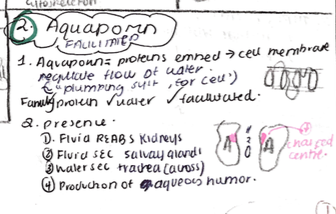 cytoskeleton
2. Aquaporin
FACILITATED
1. Aquaporin = proteins embed → cell membrane
regulate flow of water.
("plumbing syst, for cell")
Family protein ✓water ✓facilitated.
2. Presence.
① Fluid REABS Kidneys
② Fluid SEC salivary glands
③ Water sec trachea (across)
④ Production of aqueous humor.
A H2O A
⊕ charged
centre.